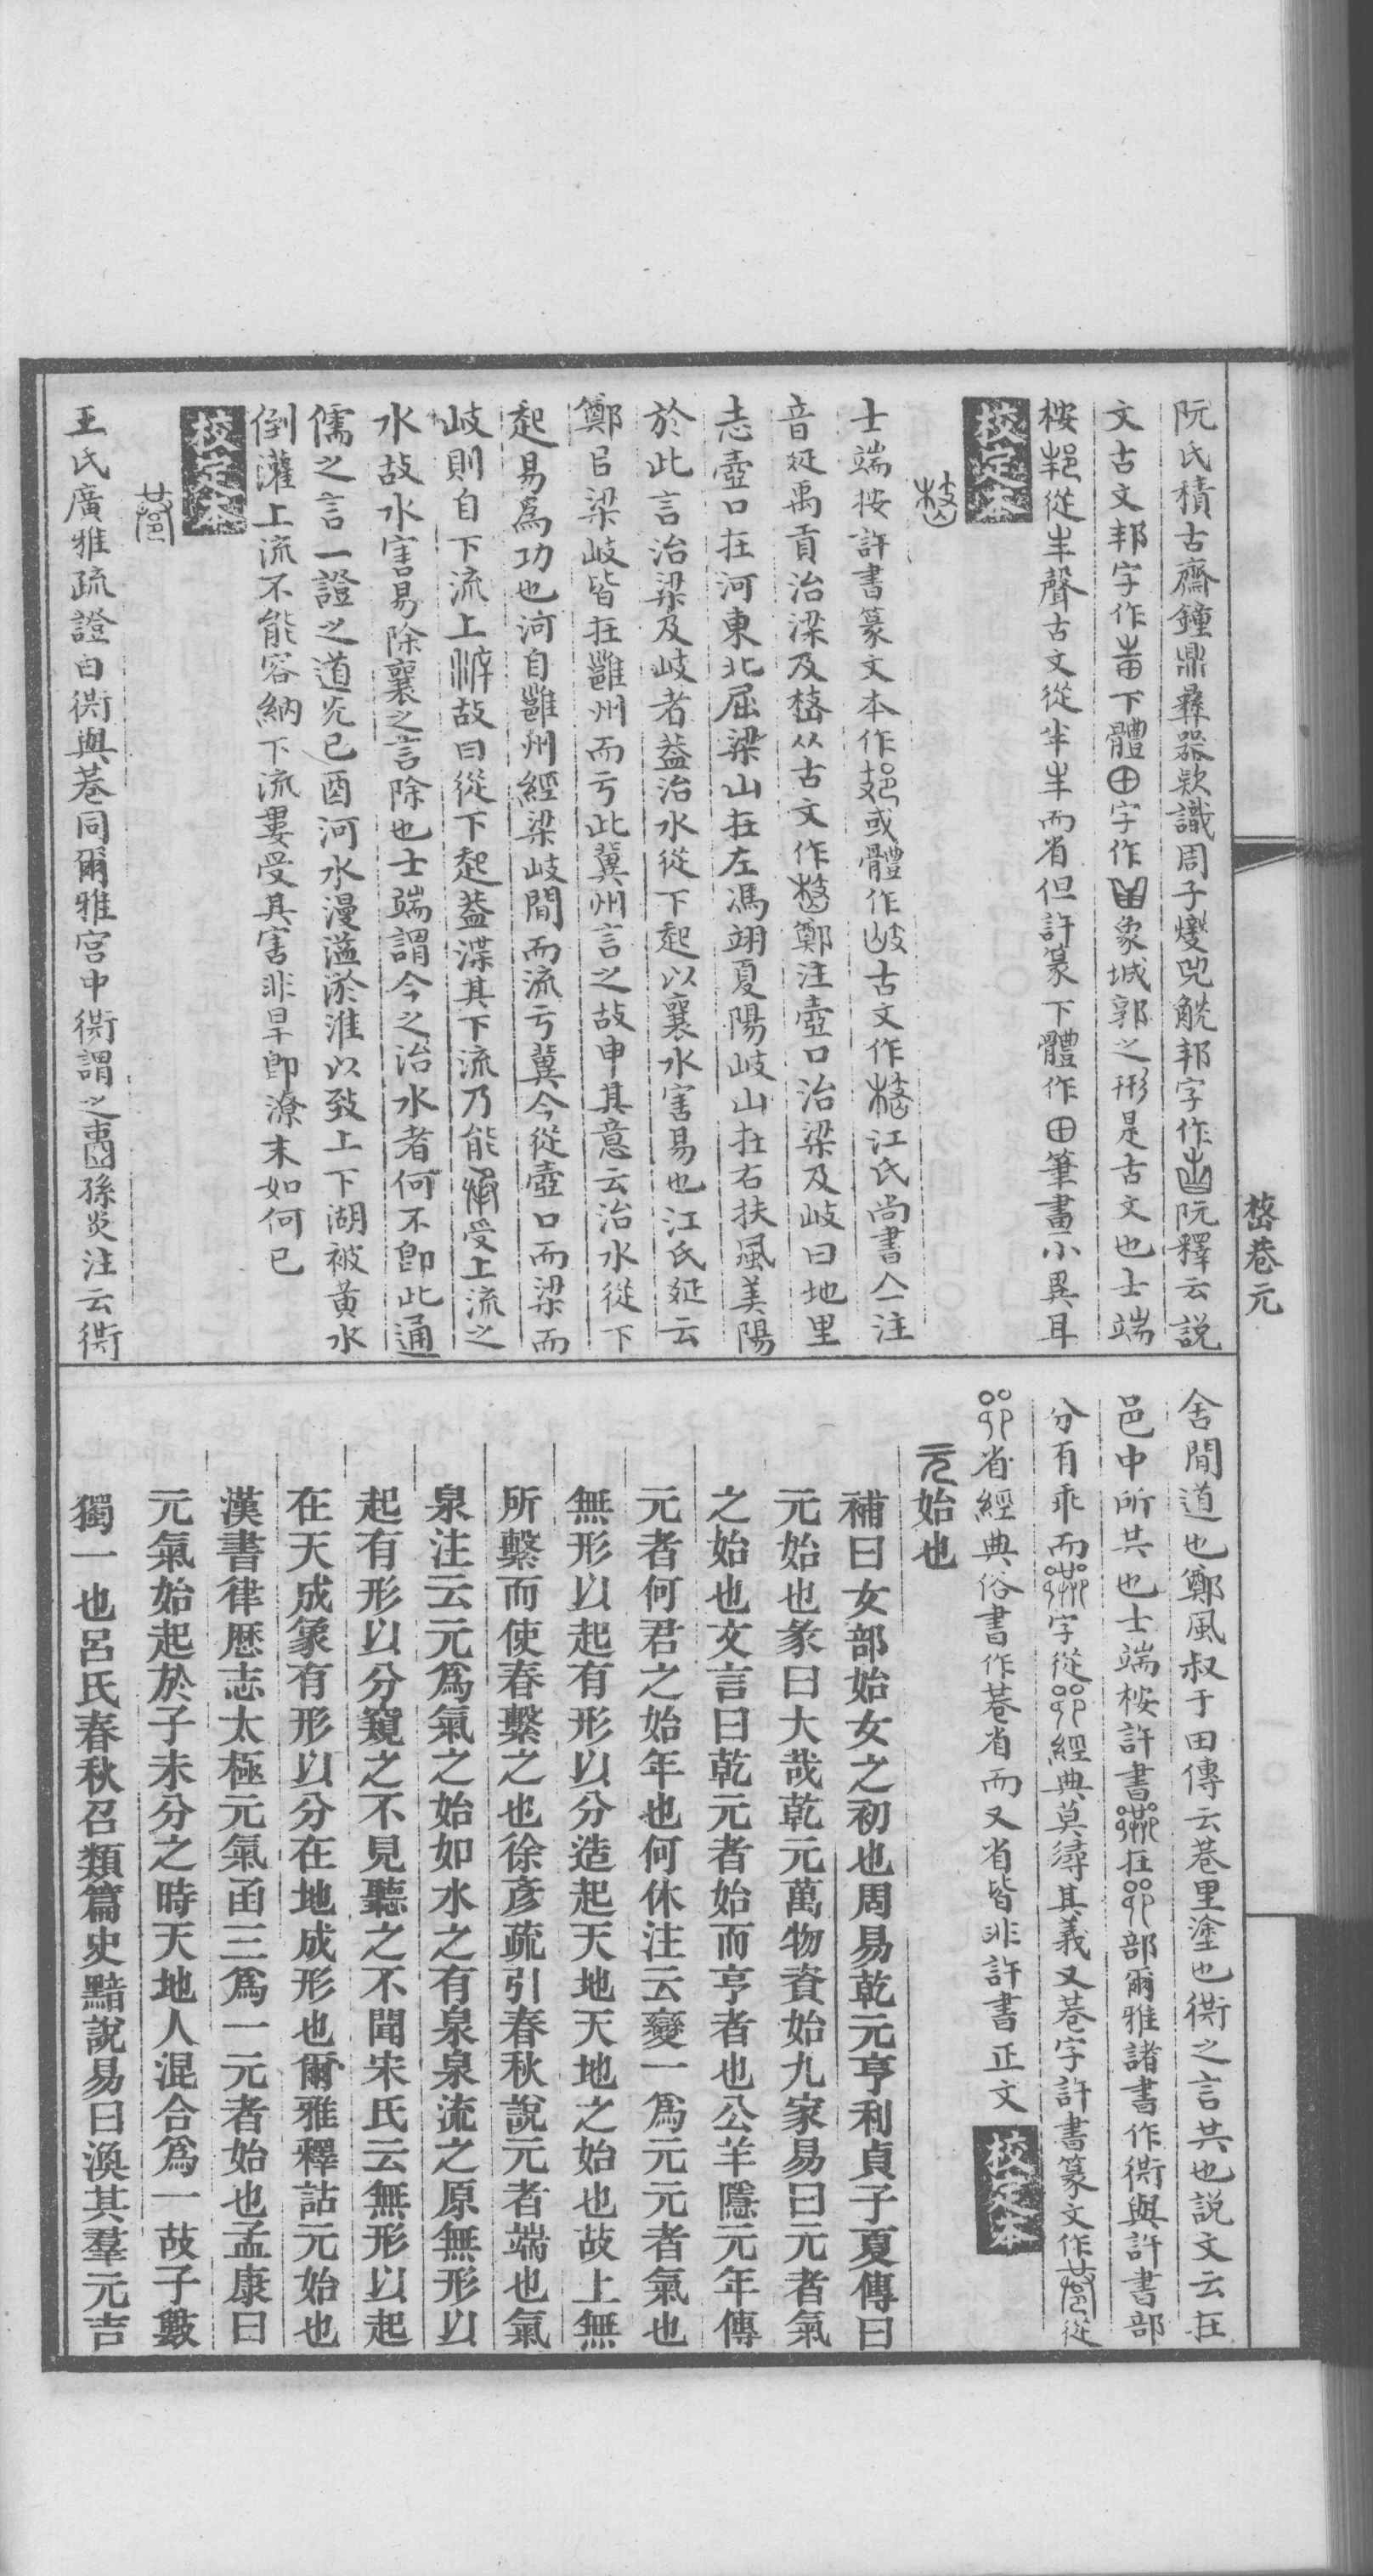 阮氏積古齋鐘鼎彝器款識周子燮兕觥邦字作阮釋云説
文古文邦字作下體田字作象城郭之形是古文也士端
桉從丰聲古文從半半而省但許篆下體作田筆畫小異耳
校定本
士端桉許書篆文本作或體作岐古文作江氏尚書亼注
音延禹貢治梁及从古文作鄭注壺口治梁及岐曰地里
志壺口在河東北屈梁山在左馮翊夏陽岐山在右扶風美陽
於此言治梁及岐者葢治水從下起以襄水害易也江氏延云
鄭㠯梁岐皆在雝州而亏此冀州言之故申其意云治水從下
起易爲功也河自雝州經梁岐閒而流亏冀今從壺口而梁而
岐則自下流上故曰從下起葢渫其下流乃能受上流之
水故水害易除襄之言除也士端謂今之治水者何不卽此通
儒之言一證之道光己酉河水漫溢淤淮以致上下湖被黃水
倒灌上流不能容納下流婁受其害非旱卽潦末如何已
校定本
王氏廣雅疏證曰衖與巷同爾雅宫中衖謂之壼孫炎注云衖
舍閒道也鄭風叔于田傳云巷里塗也衖之言共也説文云在
邑中所共也士端桉許書在部爾雅諸書作衖與許書部
分有乖而字從經典莫㝷其義又巷字許書篆文作從
省經典俗書作巷省而又省皆非許書正文校定本
元始也
補曰女部始女之初也周易乾元亨利貞子夏傳曰
元始也彖曰大哉乾元萬物資始九家易曰元者氣
之始也文言曰乾元者始而亨者也公羊隱元年傳
元者何君之始年也何休注云變一爲元元者氣也
無形以起有形以分造起天地天地之始也故上無
所繫而使春繫之也徐彥疏引春秋說元者端也氣
泉注云元爲氣之始如水之有泉泉流之原無形以
起有形以分窺之不見聽之不聞宋氏云無形以起
在天成象有形以分在地成形也爾雅釋詁元始也
漢書律厤志太極元氣函三爲一元者始也孟康曰
元氣始起於子未分之時天地人混合爲一故子數
獨一也呂氏春秋召類篇史黯說易曰渙其羣元吉
巷元